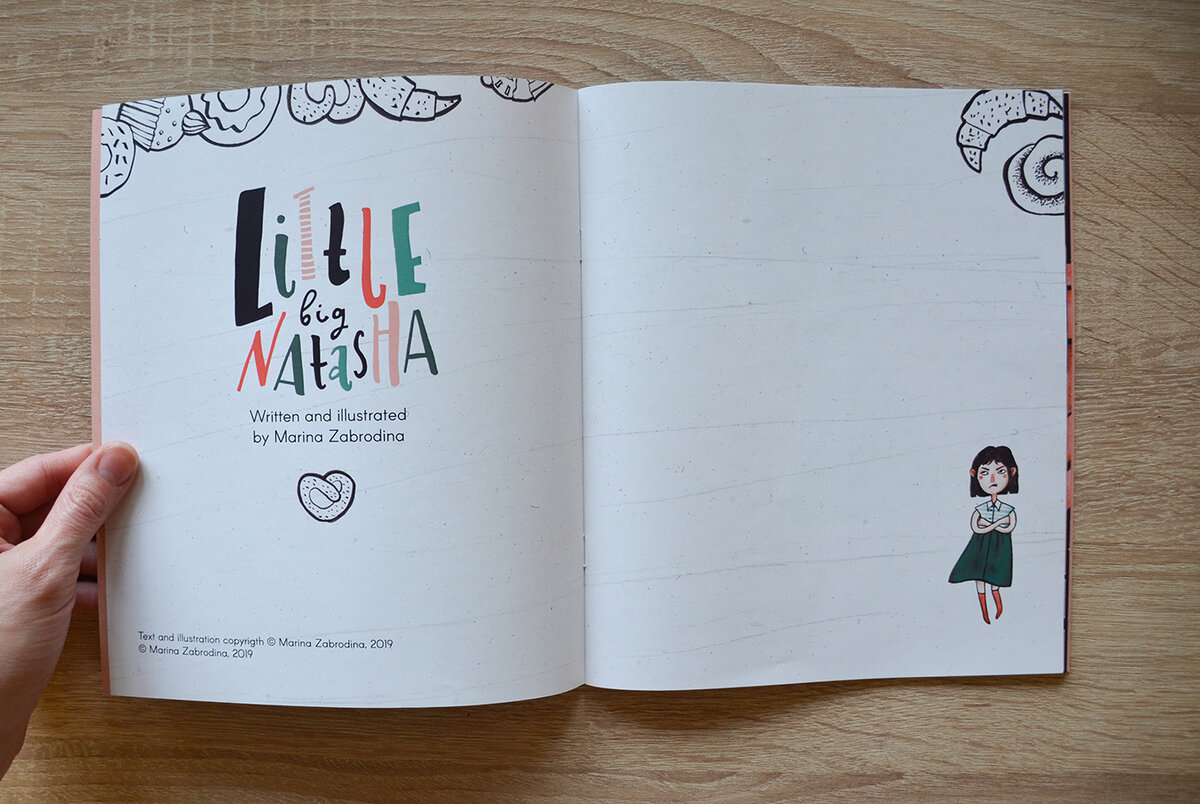 LittLE
big
NAtasHA
Written and illustrated
by Marina Zabrodina
Text and illustration copyrigth © Marina Zabrodina, 2019
© Marina Zabrodina, 2019